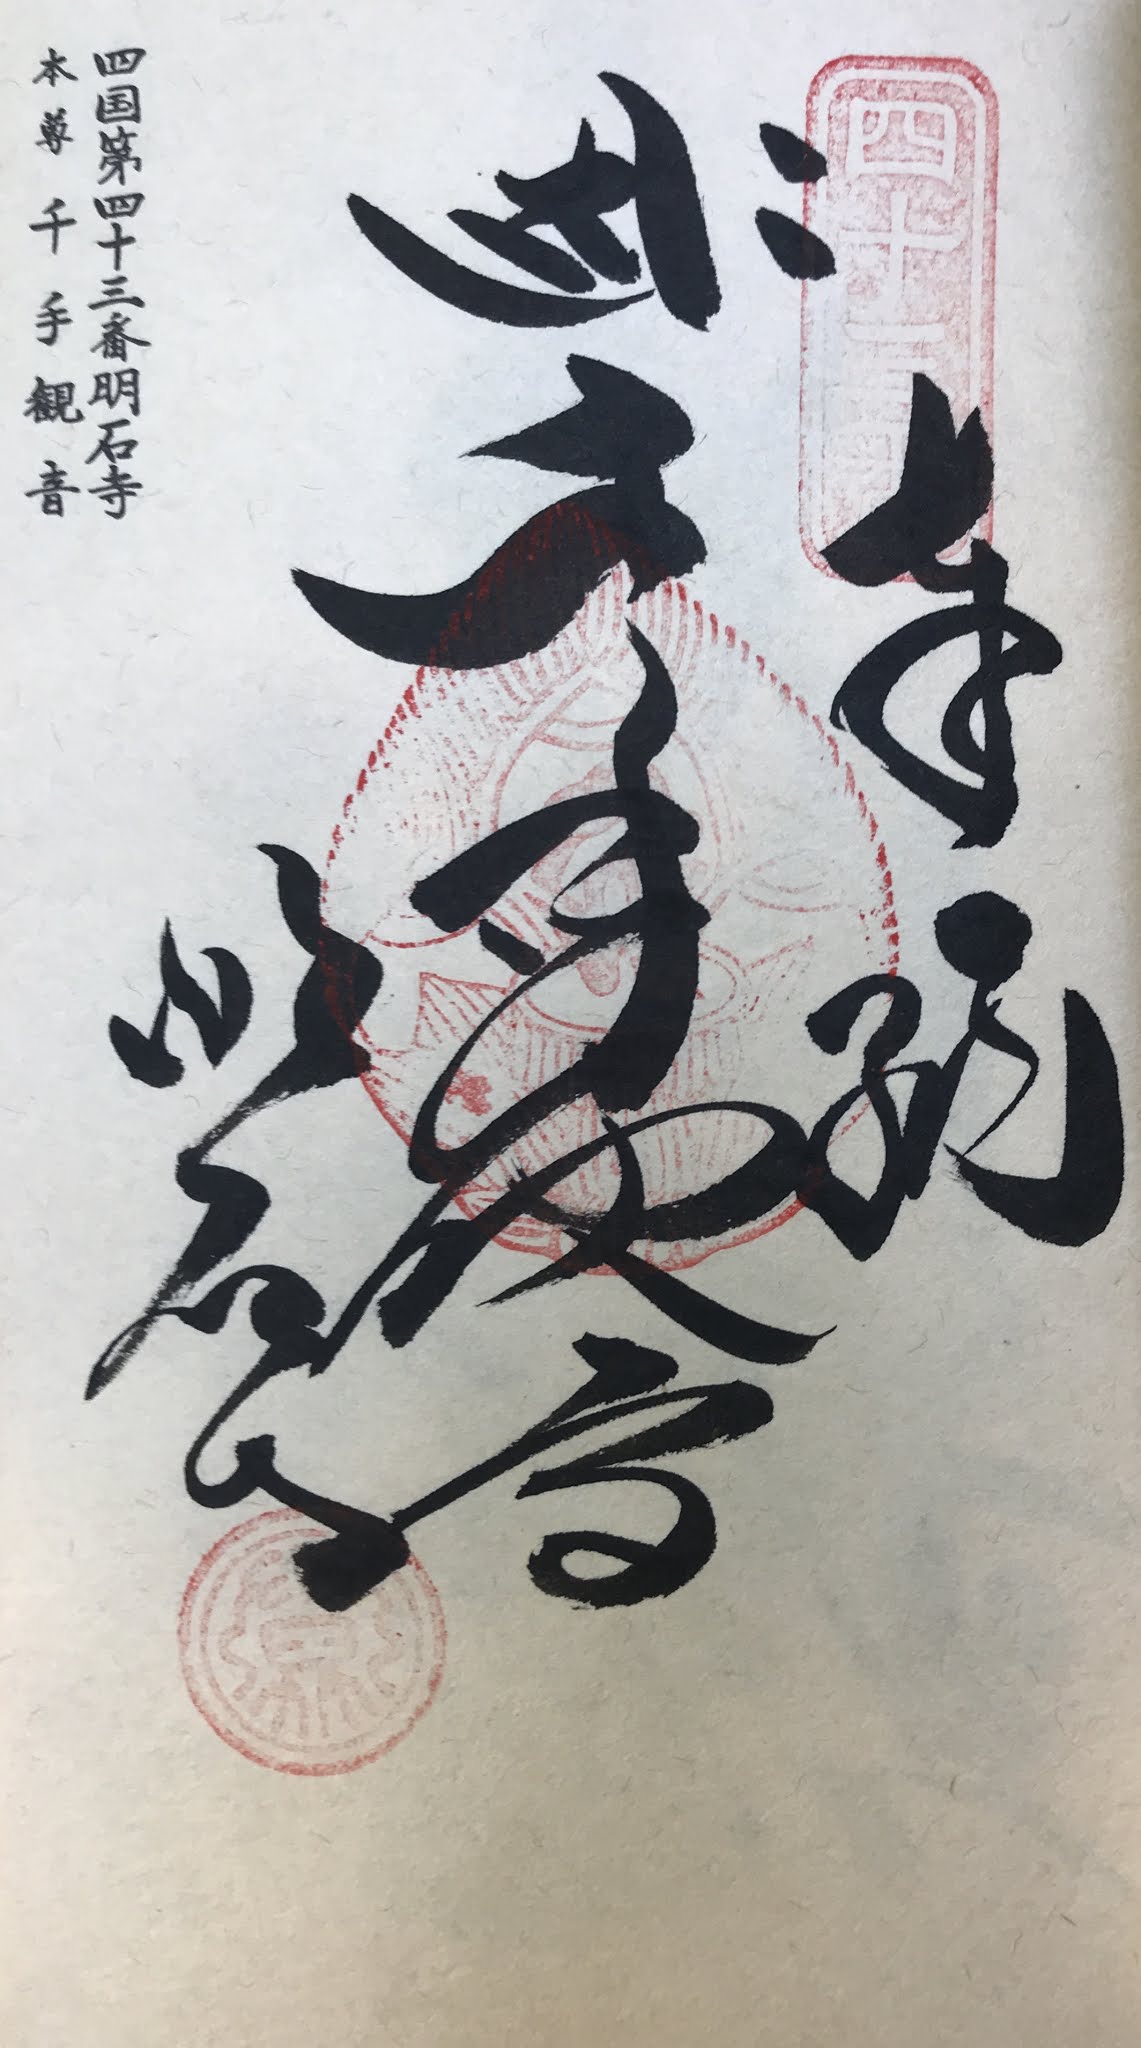 四十三番
奉納
千手観音
明石寺
四国第四十三番明石寺
本尊千手観音